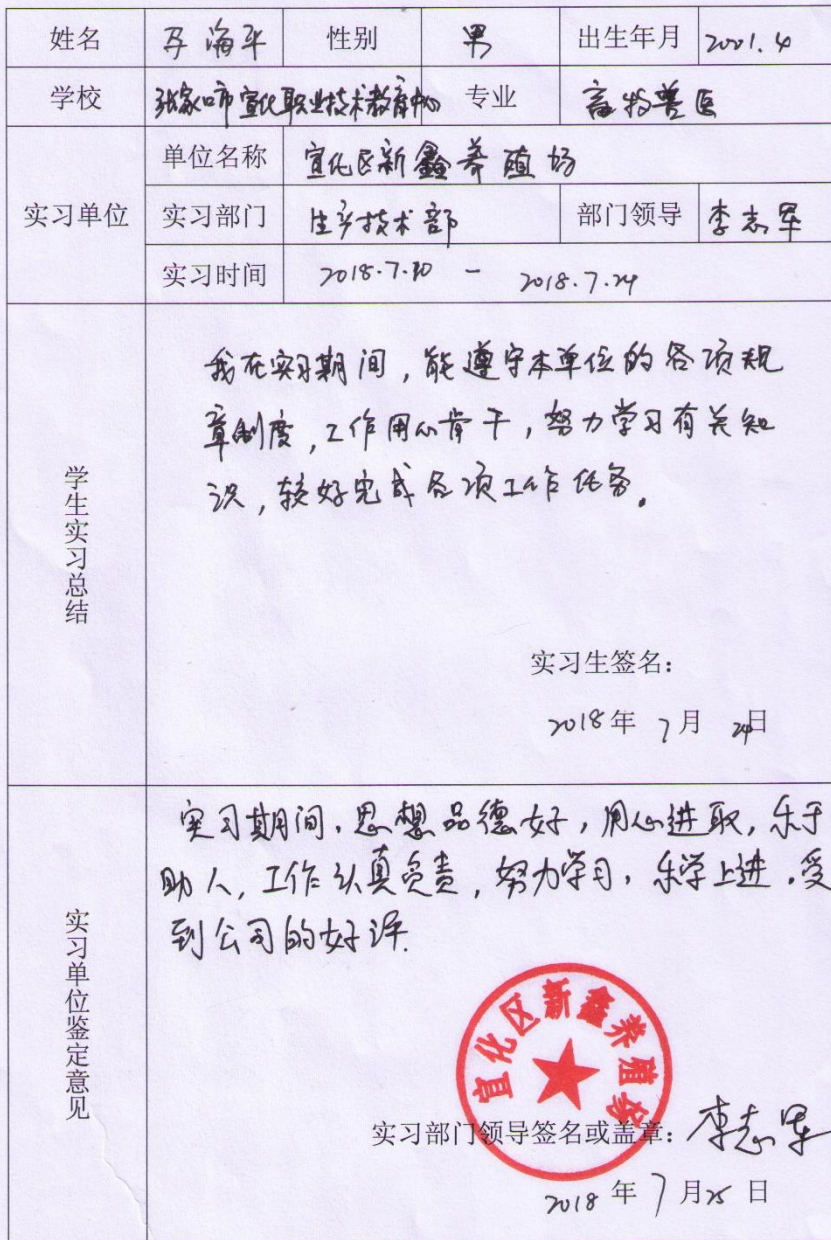 姓名 马海平 性别 男 出生年月 2001.4
学校 张家口市宣化职业技术教育中心 专业 畜牧兽医
实习单位 单位名称 宣化区新鑫养殖场
实习部门 生产技术部 部门领导 李志军
实习时间 2018.7.10 - 2018.7.24
学生实习总结
我在实习期间,能遵守本单位的各项规
章制度,工作用心肯干,努力学习有关知
识,较好完成各项工作任务。
实习生签名:
2018年 7月 24日
实习单位鉴定意见
实习期间,思想品德好,用心进取,乐于
助人,工作认真负责,努力学习,乐学上进,受
到公司的好评.
宣化区新鑫养殖场
实习部门领导签名或盖章: 李志军
2018年7月25日